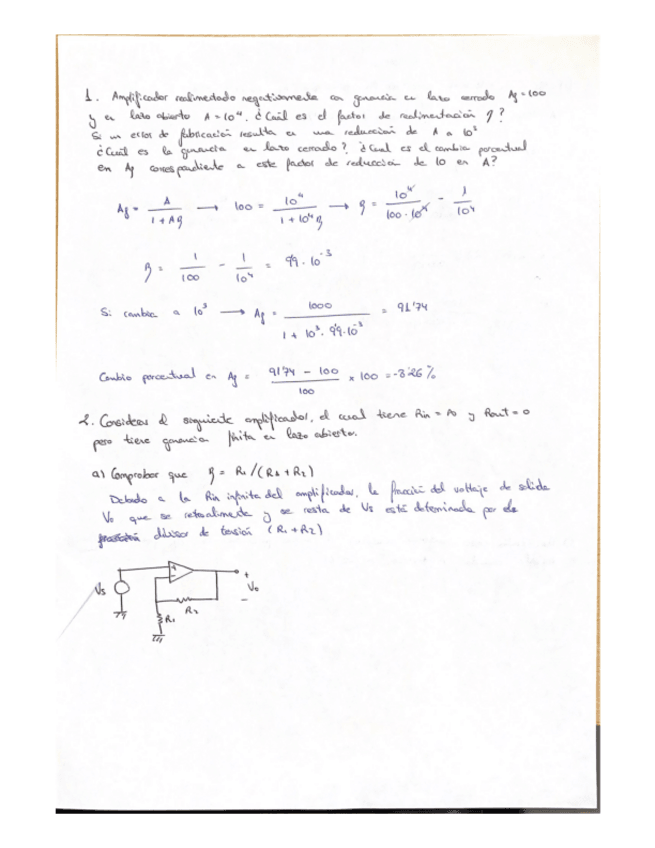 1. Amplificador realimentado negativamente con ganancia en lazo cerrado Af = 100
y en lazo abierto A = 10⁴. ¿Cuál es el factor de realimentación β?
Si un error de fabricación resulta en una reducción de A a 10³
¿Cuál es la ganancia en lazo cerrado? ¿Cual es el cambio porcentual
en Af correspondiente a este factor de reducción de 10 en A?
Af = A / (1 + Aβ) → 100 = 10⁴ / (1 + 10⁴β) → β = 10⁴ / (100 · 10⁴) - 1 / 10⁴
β = 1 / 100 - 1 / 10⁴ = 9'9 · 10⁻³
Si cambia a 10³ → Af = 1000 / (1 + 10³ · 9'9 · 10⁻³) = 91'74
Cambio porcentual en Af = (91'74 - 100) / 100 × 100 = -8'26 %
2. Considerar el siguiente amplificador, el cual tiene Rin = ∞ y Rout = 0
pero tiene ganancia finita en lazo abierto.
a) Comprobar que β = R1 / (R1 + R2)
Debado a la Rin infinita del amplificador, la fracción del voltaje de salida
Vo que se retroalimenta y se resta de Vs está determinada por el
divisor de tensión (R1 + R2)
Vs
+
-
+
Vo
-
R2
R1